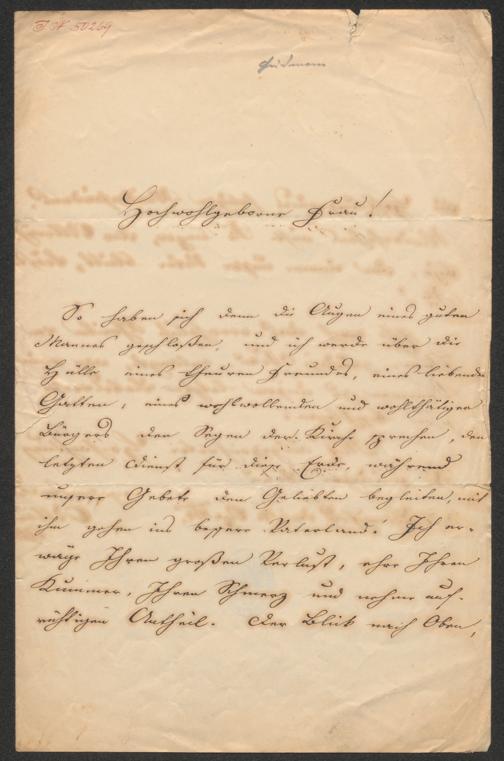 I.N. 50269
Hochwohlgeborne Frau!
So haben sich denn die Augen eines guten
Mannes geschloßen, und ich werde über die
Hülle eines theuren Freundes, eines liebenden
Gatten, eines wohlwollenden und wohlthätigen
Bürgers den Segen der Kirche sprechen, den
letzten Dienst für diese Erde, während
unsere Gebete den Geliebten begleiten, mit
ihm gehen ins bessere Vaterland! Ich er-
wäge Ihren großen Verlust, ehre Ihren
Kummer, Ihren Schmerz und nehme auf-
richtigen Antheil. Der Blick nach Oben,